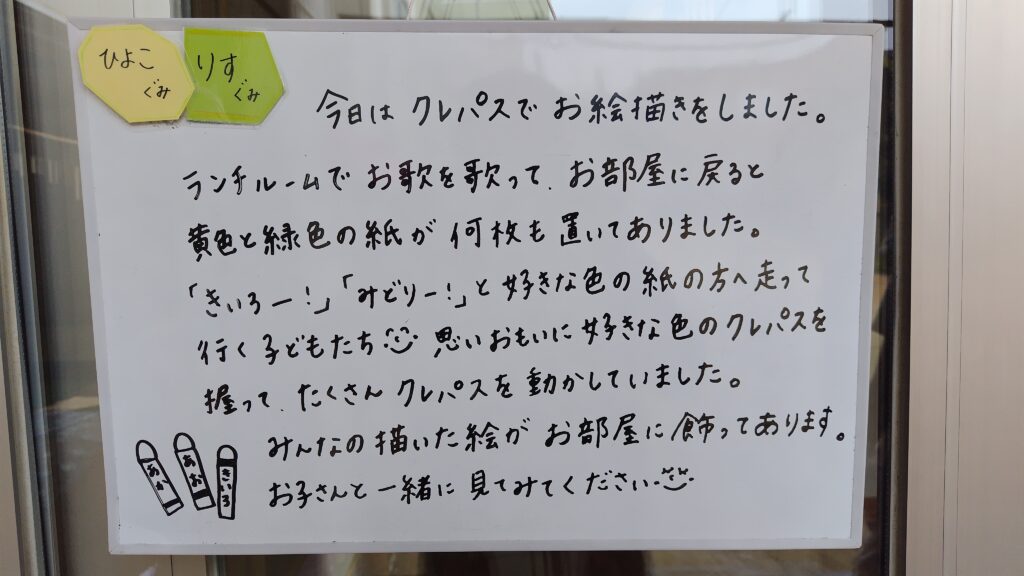 ひよこ
ぐみ
りす
ぐみ
今日は クレパスで お絵描きをしました。
ランチルームで お歌を歌って、お部屋に戻ると
黄色と緑色の紙が 何枚も 置いてありました。
「きいろー!」「みどりー!」と 好きな色の 紙の方へ走って
行く 子どもたち 思いおもいに 好きな 色のクレパスを
握って、たくさん クレパスを 動かしていました。
みんなの 描いた絵が お部屋に 飾ってあります。
お子さんと 一緒に 見てみてください
あか
あお
きいろ